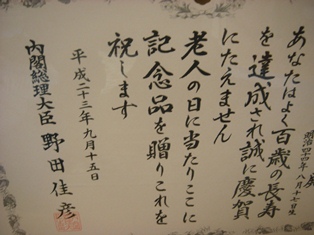 明治四十四年八月十七日生
あなたはよく百歳の長寿
を達成され誠に慶賀
にたえません
老人の日に当たりここに
記念品を贈りこれを
祝します
平成二十三年九月十五日
内閣総理大臣 野田佳彦